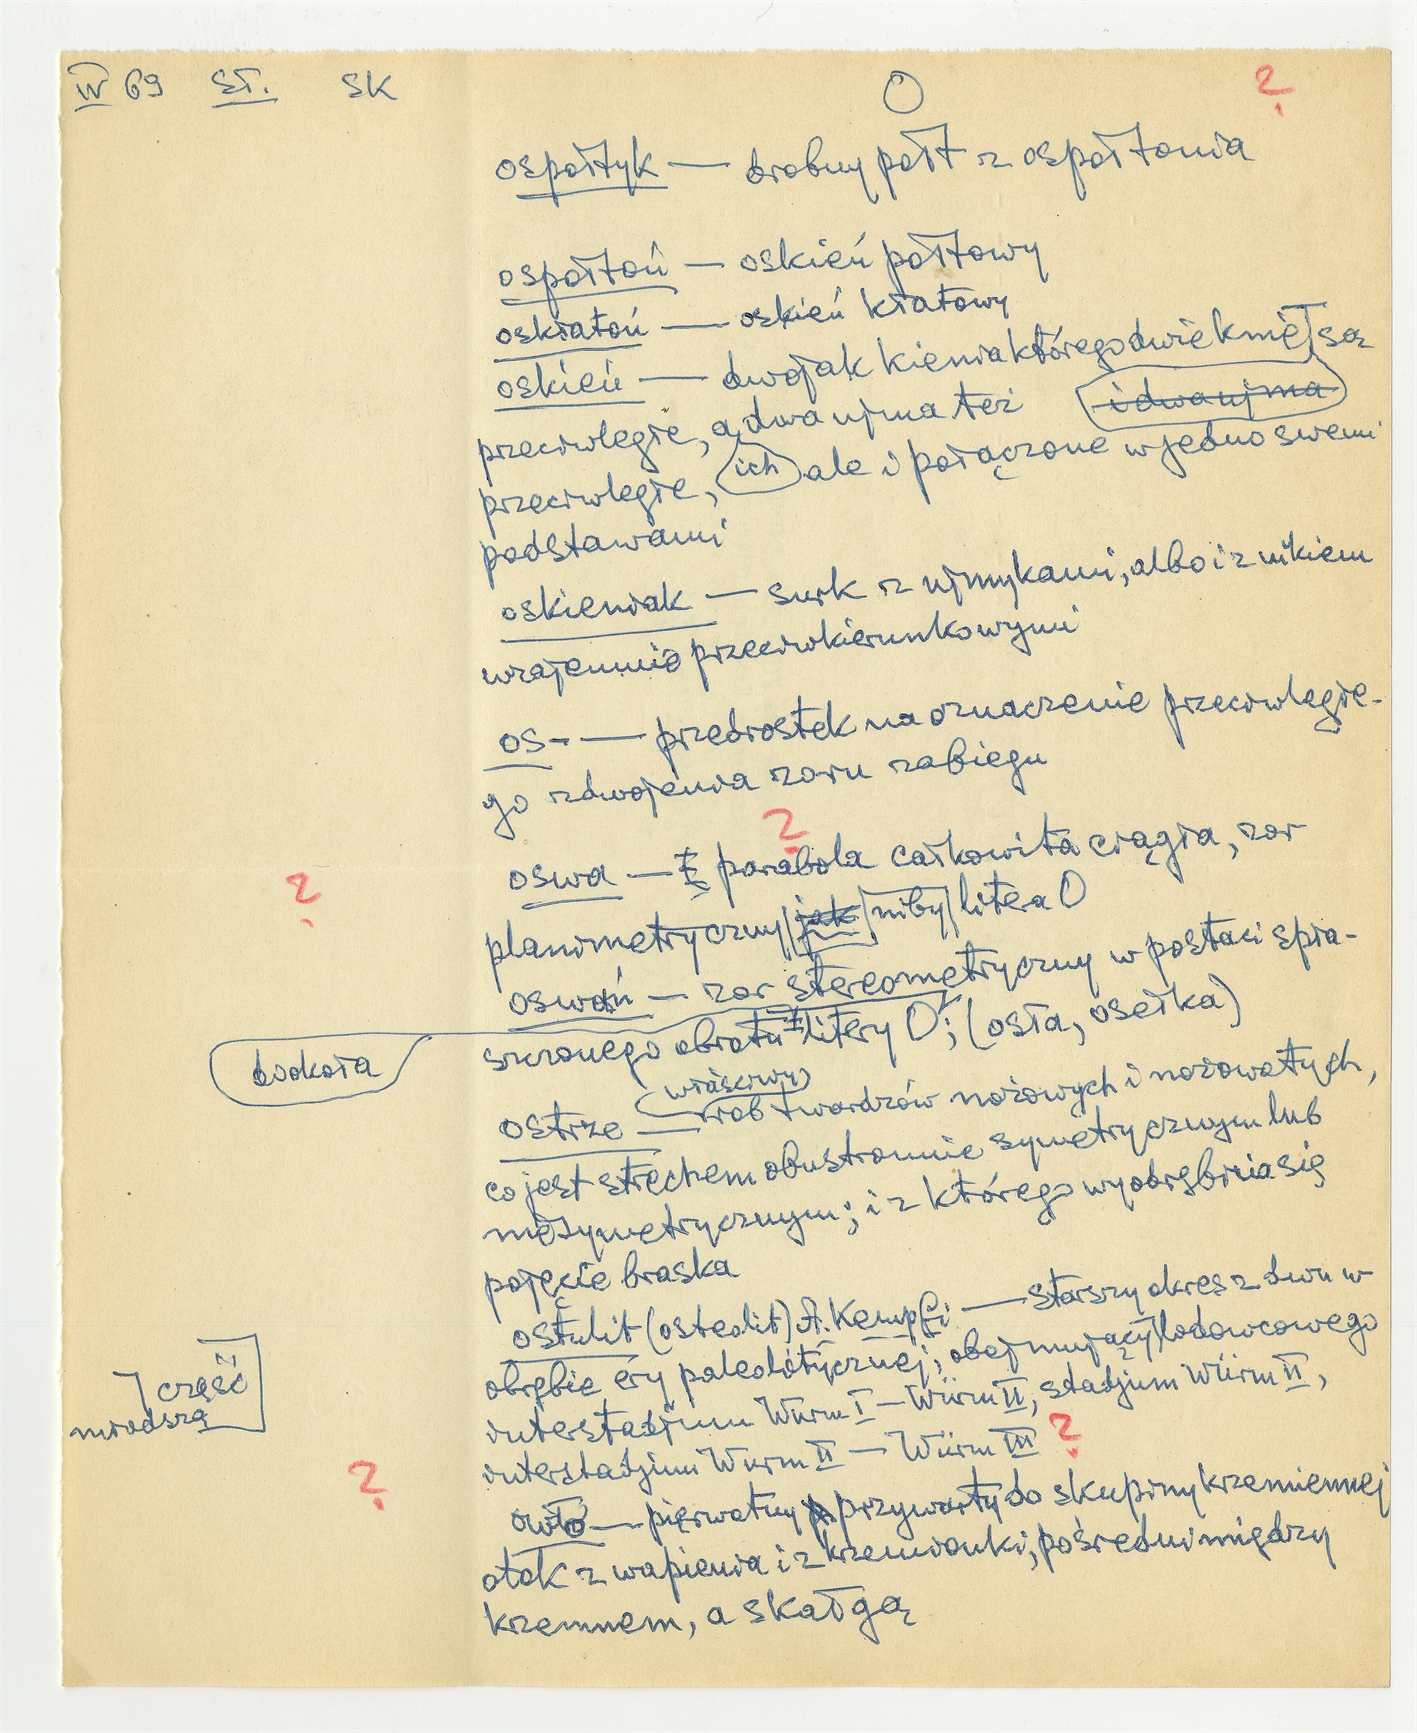 IV 69 ST. SK O ?
ospołtyk — drobny połt z ospołtania
ospołtoń — oskień połtowy
oskłatoń — oskień kłatowy
oskień — dwojak kienia którego dwie kmięT są
przeciwległe, a dwa ujma też i dwa ujma
przeciwległe, ich ale i połączone w jedno swemi
podstawami
oskieniak — surk z ujmykami, albo i z nikiem
wzajemnie przeciwkierunkowymi
os- — przedrostek na oznaczenie przeciwległe-
go zdwojenia zoru zabiegu
?
oswa — parabola całkowita ciągła, zor
?
planimetryczny jak niby litera O
oswań — zor stereometryczny w postaci spła-
szczonego obrotu litery O; (osła, osełka)
dookoła
właściwy
ostrze — rąb twardzów nożowych i nożowatych,
co jest stręchem obustronnie symetrycznym lub
niesymetrycznym; i z którego wyodrębnia się
pojęcie braska
ostulit (osteolit) A. Kempfi — starszy okres z dwu w
obrębie ery paleolitycznej; obejmujący lodowcowego
część
młodszą
interstadjum Würm I — Würm II, stadjum Würm II,
interstadjum Würm II — Würm III ?
?
owło — pierwotny przywarty do skupiny krzemiennej
otok z wapienia i z krzemionki, pośredni między
krzemnem, a skałgą